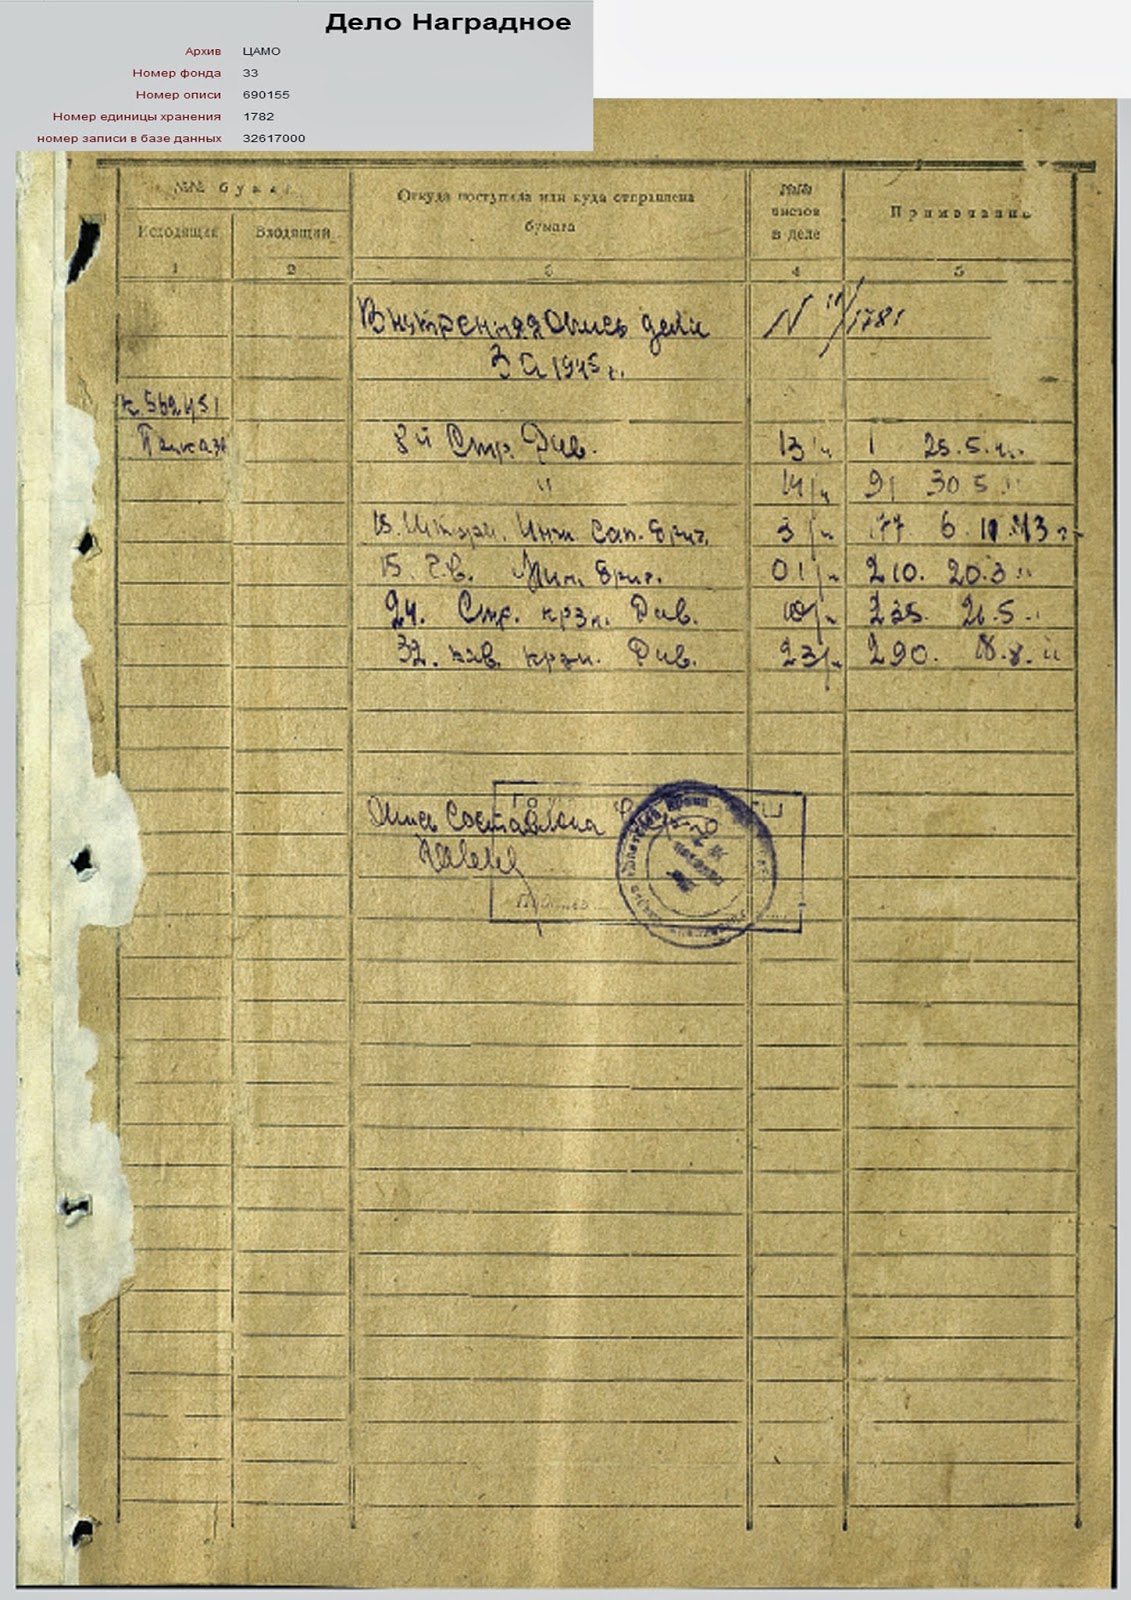 Дело Наградное
Архив ЦАМО
Номер фонда 33
Номер описи 690155
Номер единицы хранения 1782
номер записи в базе данных 32617000
№№ бумаг
Откуда поступила или куда отправлена бумага
№№ листов в деле
Примечание
Исходящий
Входящий
1 2 3 4 5
Внутренняя Опись дела N 11/1781
За 1945 г.
к. 562451
Приказы 8й Стр. Див. 13/н 1 25.5.
" 14/н 91 30 5 "
15. Штурм. Инж. Сап. Бриг. 3/н 177 6. 11.43 г.
15. Гв. Мин. Бриг. 01/н 210. 20.3 "
24. Стр. крзн. Див. 10/н 235. 21.5
32. кав. крзн. Див. 23/н 290. 18.8. "
Опись Составлена